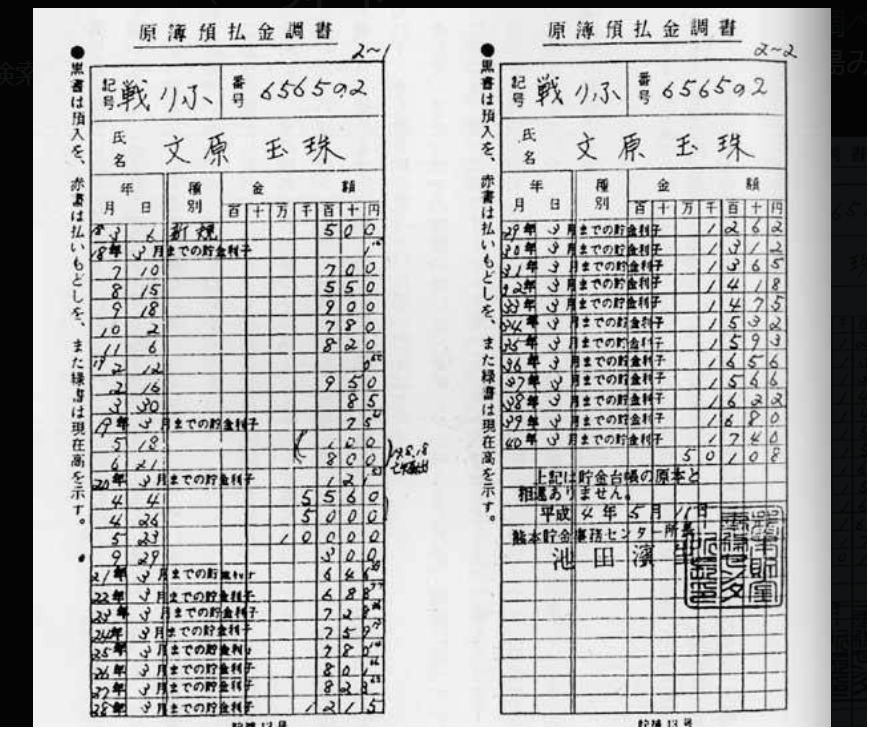 原簿預払金調書
2~1
●黒書は預入を、赤書は払いもどしを、また緑書は現在高を示す。
記号 戦りふ 番号 656502
氏名 文原 玉珠
年月日 種別 金額
百 十 万 千 百 十 円
18 3 6 新規 500
18年 3月までの貯金利子 1
7 10 700
8 15 550
9 18 900
10 2 780
11 6 820
19 2 12
2 16 950
3 30 85
19年 3月までの貯金利子 75
5 18 100
6 21 800
20年 3月までの貯金利子 121
4 4 5560
4 26 5000
5 23 10000
9 29 300
21年 3月までの貯金利子 646
22年 3月までの貯金利子 688
23年 3月までの貯金利子 728
24年 3月までの貯金利子 759
25年 3月までの貯金利子 780
26年 3月までの貯金利子 801
27年 3月までの貯金利子 823
28年 3月までの貯金利子 1215
原簿預払金調書
2~2
●黒書は預入を、赤書は払いもどしを、また緑書は現在高を示す。
記号 戦りふ 番号 656502
氏名 文原 玉珠
年月日 種別 金額
百 十 万 千 百 十 円
29年 3月までの貯金利子 1262
30年 3月までの貯金利子 1312
31年 3月までの貯金利子 1365
32年 3月までの貯金利子 1418
33年 3月までの貯金利子 1475
34年 3月までの貯金利子 1532
35年 3月までの貯金利子 1593
36年 3月までの貯金利子 1656
37年 3月までの貯金利子 1566
38年 3月までの貯金利子 1622
39年 3月までの貯金利子 1680
40年 3月までの貯金利子 1740
50108
上記は貯金台帳の原本と
相違ありません。
平成 4年 5月 11日
熊本貯金事務センター所長
池田 濱